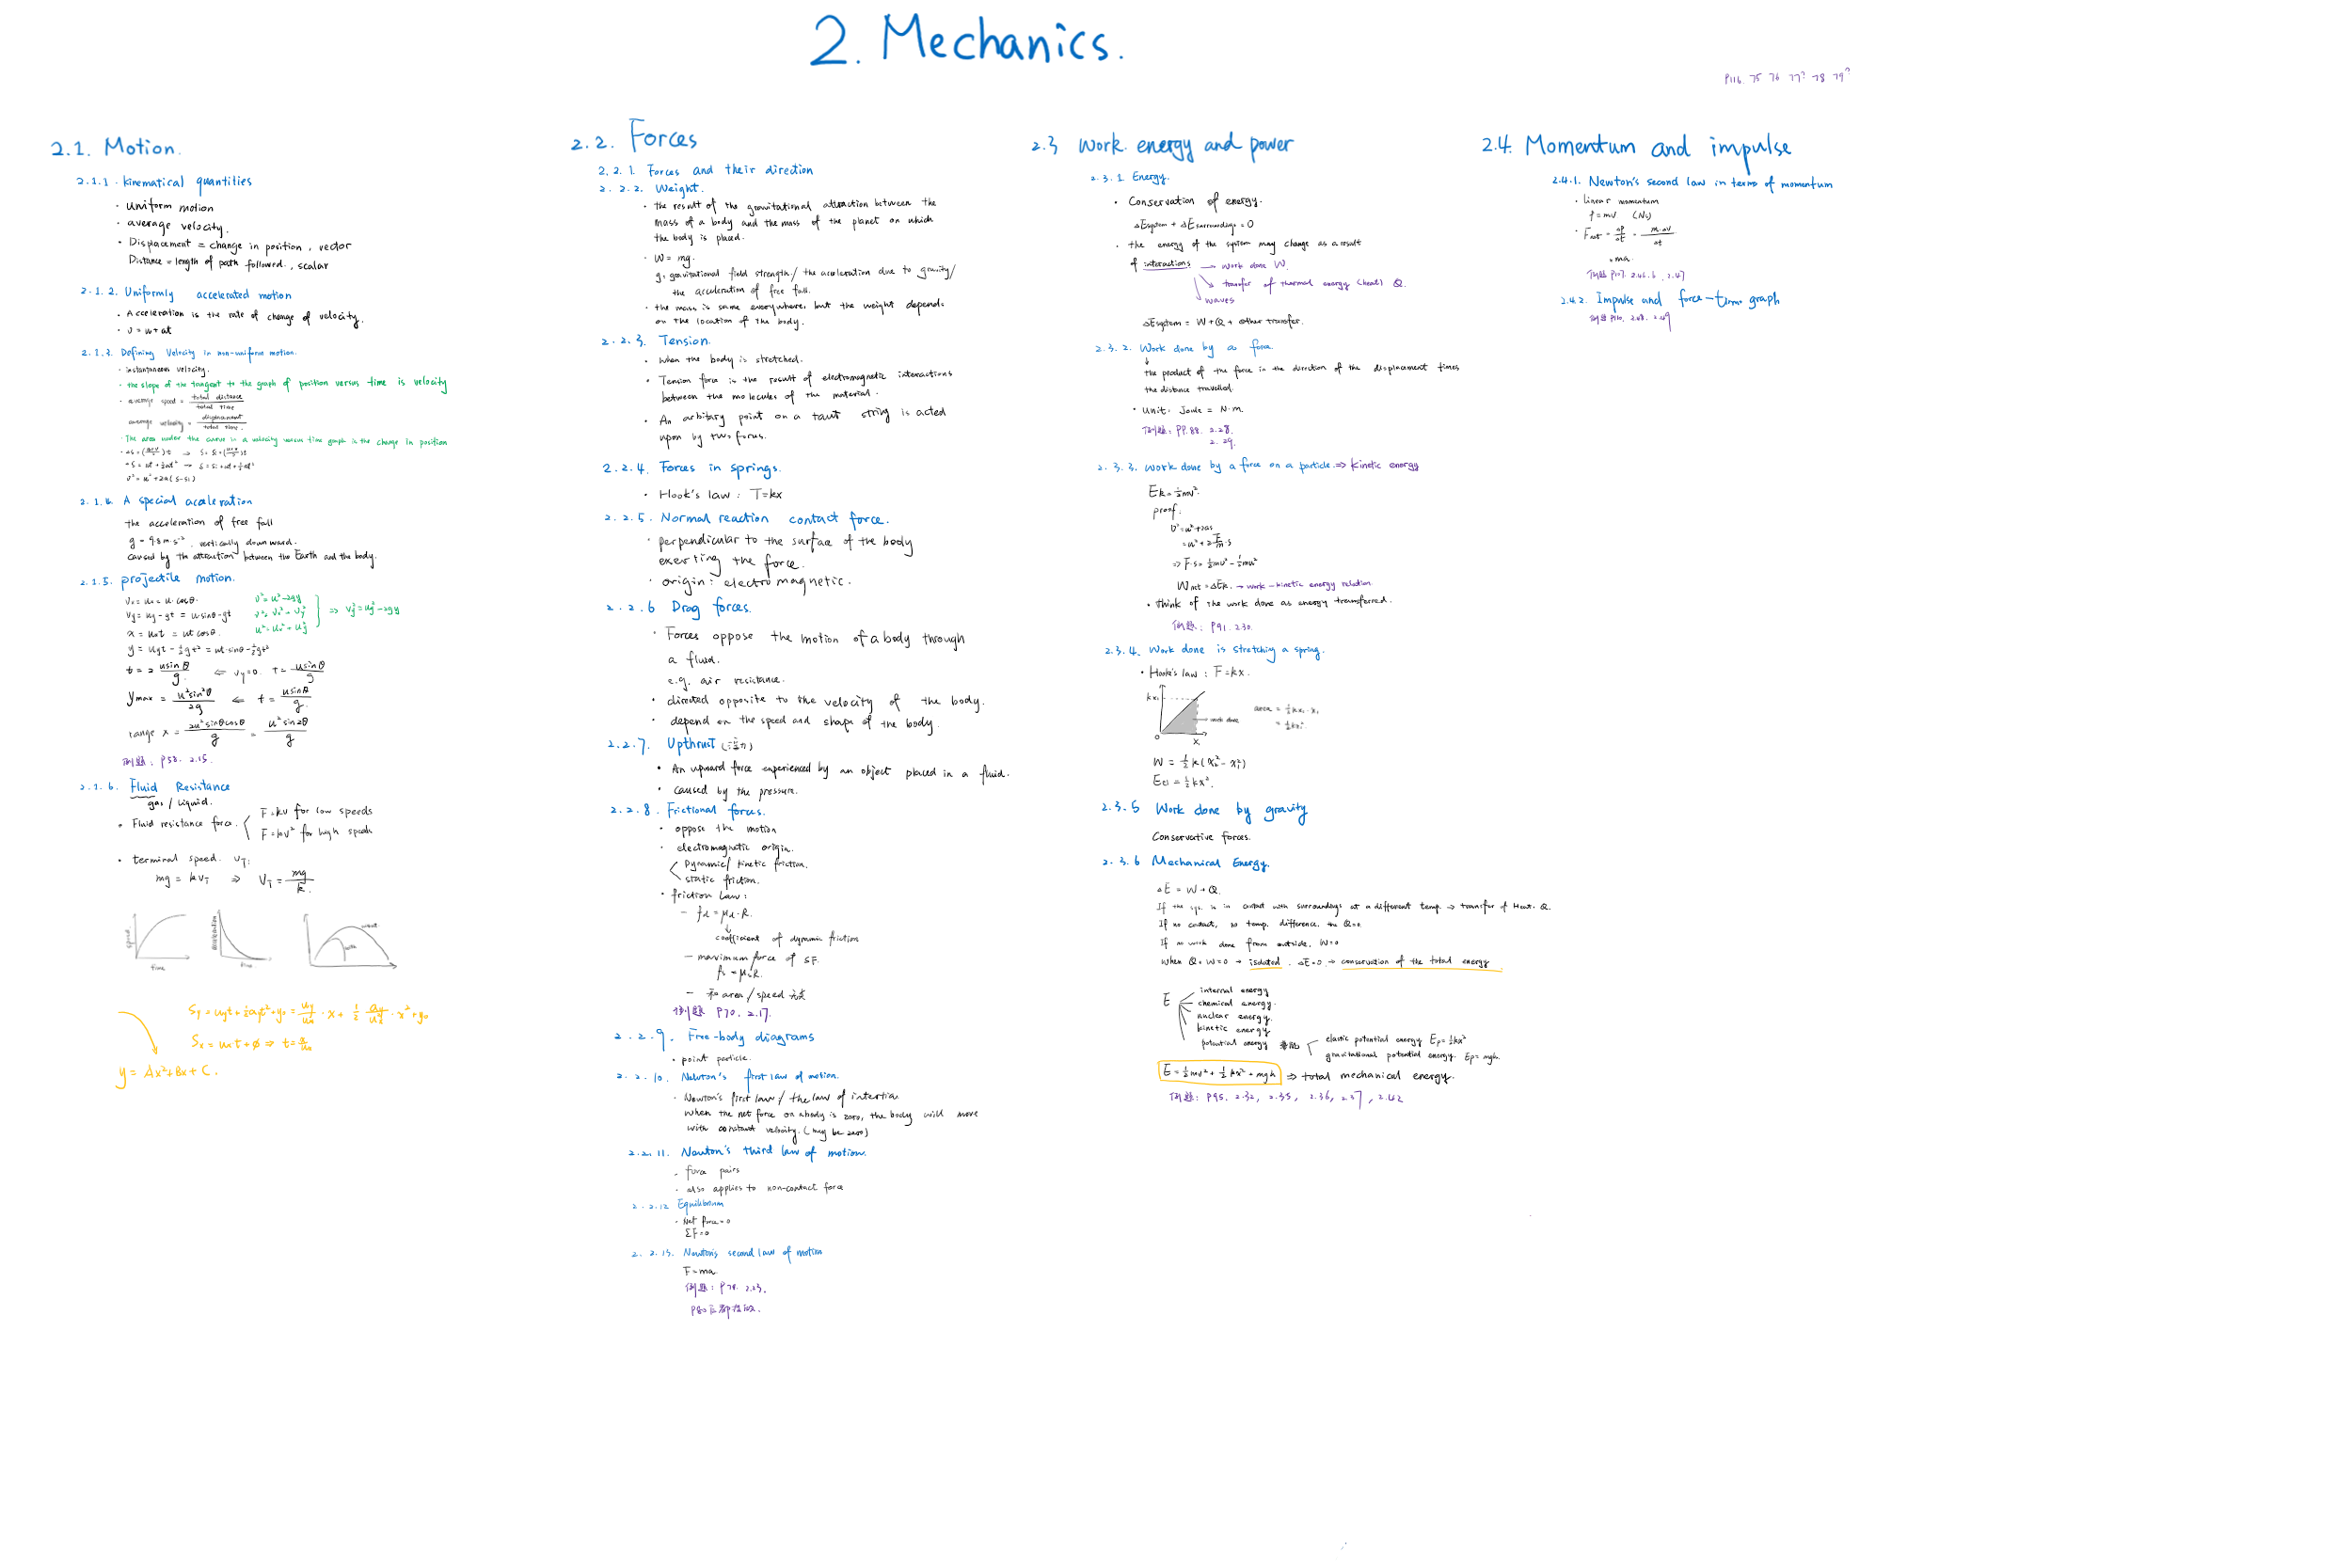 2. Mechanics.
P116. 75 76 77? 78 79?
2.1. Motion.
2.1.1. kinematical quantities
· Uniform motion
· average velocity.
· Displacement = change in position, vector
Distance = length of path followed., scalar
2.1.2. Uniformly accelerated motion
· Acceleration is the rate of change of velocity.
· v = u+at
2.1.3. Defining Velocity in non-uniform motion.
· instantaneous velocity.
· the slope of the tangent to the graph of position versus time is velocity
· average speed = total distance / total time
average velocity = displacement / total time.
· The area under the curve in a velocity versus time graph is the change in position
· ΔS = (u+v/2)t ⇒ S = Si + (u+v/2)t
ΔS = ut + ½at² → S = Si + ut + ½at²
v² = u² + 2a(S-Si)
2.1.4. A special acceleration
the acceleration of free fall
g = 9.8 m·s⁻², vertically downward.
caused by the attraction between the Earth and the body.
2.1.5. projectile motion.
Vx = ux = u·cosθ.
Vy = uy - gt = u·sinθ - gt
x = uxt = ut cosθ.
y = uyt - ½gt² = ut·sinθ - ½gt²
v² = u² - 2gy
v² = Vx² + Vy²
u² = ux² + uy²
⇒ Vy² = uy² - 2gy
t = 2 usinθ/g. ⇐ Vy=0. t = usinθ/g
ymax = u²sin²θ/2g ⇐ t = usinθ/g.
range x = 2u²sinθcosθ/g = u²sin2θ/g
例题: P58. 2.15.
2.1.6. Fluid Resistance
gas / Liquid.
· Fluid resistance force. F=kv for low speeds
F=kv² for high speeds
· terminal speed. VT:
mg = kVT ⇒ VT = mg/k.
speed
time
acceleration
time
without
with
Sy = uyt + ½ayt² + y₀ = uy/ux · x + ½ ay/ux² · x² + y₀
Sx = uxt + 0 ⇒ t = x/ux
y = Ax² + Bx + C.
2.2. Forces
2.2.1. Forces and their direction
2.2.2. Weight.
· the result of the gravitational attraction between the
mass of a body and the mass of the planet on which
the body is placed.
· W = mg.
g: gravitational field strength/ the acceleration due to gravity/
the acceleration of free fall.
· the mass is same everywhere, but the weight depends
on the location of the body.
2.2.3. Tension.
· when the body is stretched.
· Tension force is the result of electromagnetic interactions
between the molecules of the material.
· An arbitrary point on a taut string is acted
upon by two forces.
2.2.4. Forces in springs.
· Hook's law : T=kx
2.2.5. Normal reaction contact force.
· perpendicular to the surface of the body
exerting the force.
· origin: electromagnetic.
2.2.6 Drag forces.
· Forces oppose the motion of a body through
a fluid.
e.g. air resistance.
· directed opposite to the velocity of the body.
· depend on the speed and shape of the body.
2.2.7. Upthrust (浮力)
· An upward force experienced by an object placed in a fluid.
· caused by the pressure.
2.2.8. Frictional forces.
· oppose the motion
· electromagnetic origin.
Dynamic/ kinetic friction.
static friction.
· friction law:
- fd = μd·R.
coefficient of dynamic friction
- maximum force of SF.
fs = μsR.
- 和area/speed无关
例题 P70. 2.17.
2.2.9. Free-body diagrams
· point particle.
2.2.10. Newton's first law of motion.
· Newton's first law / the law of intertia
when the net force on a body is zero, the body will move
with constant velocity. (may be zero)
2.2.11. Newton's third law of motion.
· force pairs
· also applies to non-contact force
2.2.12 Equilibrium
· Net force=0
ΣF=0
2.2.13. Newton's second law of motion
F=ma.
例题: P78. 2.23.
2.3 Work. energy and power
2.3.1 Energy.
· Conservation of energy.
ΔEsystem + ΔEsurroundings = 0
· the energy of the system may change as a result
of interactions → work done W.
transfer of thermal energy (heat) Q.
waves
ΔEsystem = W+Q + other transfer.
2.3.2. Work done by a force.
the product of the force in the direction of the displacement times
the distance travelled.
· Unit. Joule = N·m.
例题: PP.88. 2.28.
2.29.
2.3.3. work done by a force on a particle. ⇒ kinetic energy
Ek = ½mv².
proof:
v² = u²+2as
= u² + 2 F/m·s
⇒ F·s = ½mv² - ½mu²
Wnet = ΔEk. → work-kinetic energy relation
· think of the work done as energy transferred.
例题: P91. 2.30.
2.3.4. Work done is stretching a spring.
· Hooke's law : F=kx.
kx₁
work done
0
x₁
area = ½kx₁·x₁
= ½kx₁²
W = ½k(x₂² - x₁²)
Eel = ½kx².
2.3.5 Work done by gravity
Conservative forces.
2.3.6 Mechanical Energy.
ΔE = W+Q.
If the sys. is in contact with surroundings at a different temp. ⇒ transfer of Heat. Q.
If no contact, no temp. difference, the Q=0
If no work done from outside, W=0
when Q=W=0 → isolated. ΔE=0. → conservation of the total energy
E
internal energy
chemical energy.
nuclear energy.
kinetic energy
potential energy 势能
elastic potential energy Ep=½kx²
gravitational potential energy. Ep=mgh.
E = ½mv² + ½kx² + mgh ⇒ total mechanical energy.
例题: P95. 2.32, 2.35, 2.36, 2.37, 2.42
2.4. Momentum and impulse
2.4.1. Newton's second law in terms of momentum
· linear momentum
p=mv (Ns)
· Fnet = Δp/Δt = m·Δv/Δt
= ma.
例题 P107. 2.46. 2.47
2.4.2. Impulse and force-time graph
例题 P110. 2.48. 2.49